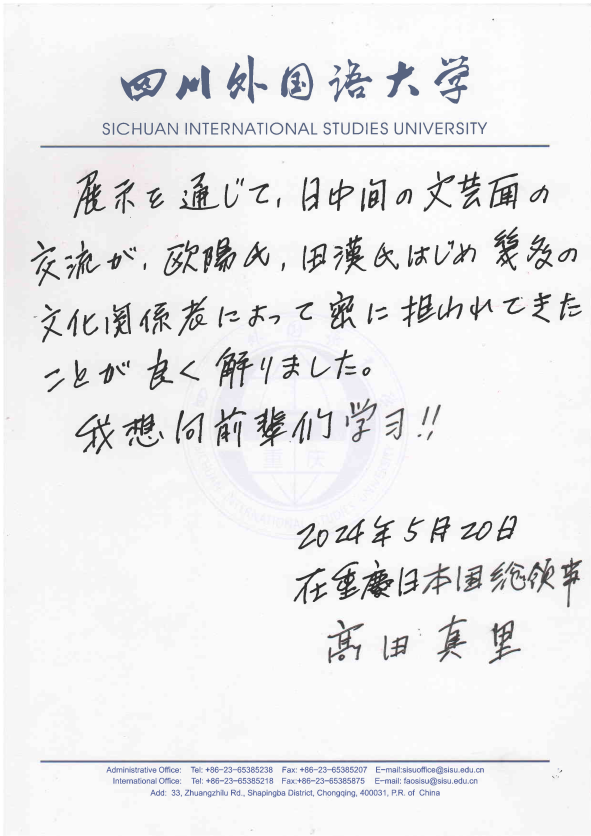 四川外国语大学
SICHUAN INTERNATIONAL STUDIES UNIVERSITY
展示を通じて、日中間の文芸面の
交流が、欧陽氏、田漢氏はじめ幾多の
文化関係者によって密に担われてきた
ことが良く解りました。
我想向前辈们学习!!
2024年5月20日
在重慶日本国総領事
高田真里
Administrative Office: Tel: +86-23-65385238 Fax: +86-23-65385207 E-mail:sisuoffice@sisu.edu.cn
International Office: Tel: +86-23-65385218 Fax:+86-23-65385875 E-mail: faosisu@sisu.edu.cn
Add: 33, Zhuangzhilu Rd., Shapingba District, Chongqing, 400031, P.R. of China